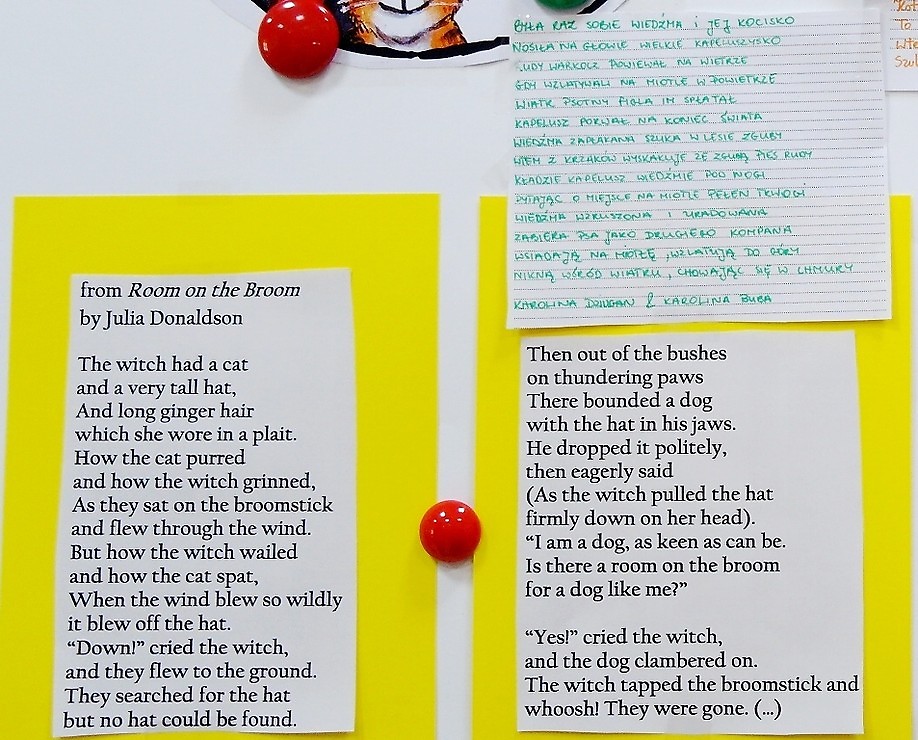 BYŁA RAZ SOBIE WIEDŹMA i JEJ KOCISKO
NOSIŁA NA GŁOWIE WIELKIE KAPELUSZYSKO
RUDY WARKOCZ POWIEWAŁ NA WIETRZE
GDY WZLATYWALI NA MIOTLE W POWIETRZE
WIATR PSOTNY FIGLA IM SPŁATAŁ
KAPELUSZ PORWAŁ NA KONIEC ŚWIATA
WIEDŹMA ZAPŁAKANA SZUKA W LESIE ZGUBY
WTEM Z KRZAKÓW WYSKAKUJE ZE ZGUBĄ PIES RUDY
KŁADZIE KAPELUSZ WIEDŹMIE POD NOGI
PYTAJĄC O MIEJSCE NA MIOTLE PEŁEN TRWOGI
WIEDŹMA WZRUSZONA I URADOWANA
ZABIERA PSA JAKO DRUGIEGO KOMPANA
WSIADAJĄ NA MIOTŁĘ, WZLATUJĄ DO GÓRY
NIKNĄ WŚRÓD WIATRU, CHOWAJĄC SIĘ W CHMURY
KAROLINA DZIUGAN & KAROLINA BUBA
from Room on the Broom
by Julia Donaldson
The witch had a cat
and a very tall hat,
And long ginger hair
which she wore in a plait.
How the cat purred
and how the witch grinned,
As they sat on the broomstick
and flew through the wind.
But how the witch wailed
and how the cat spat,
When the wind blew so wildly
it blew off the hat.
“Down!” cried the witch,
and they flew to the ground.
They searched for the hat
but no hat could be found.
Then out of the bushes
on thundering paws
There bounded a dog
with the hat in his jaws.
He dropped it politely,
then eagerly said
(As the witch pulled the hat
firmly down on her head).
“I am a dog, as keen as can be.
Is there a room on the broom
for a dog like me?”
“Yes!” cried the witch,
and the dog clambered on.
The witch tapped the broomstick and
whoosh! They were gone. (...)